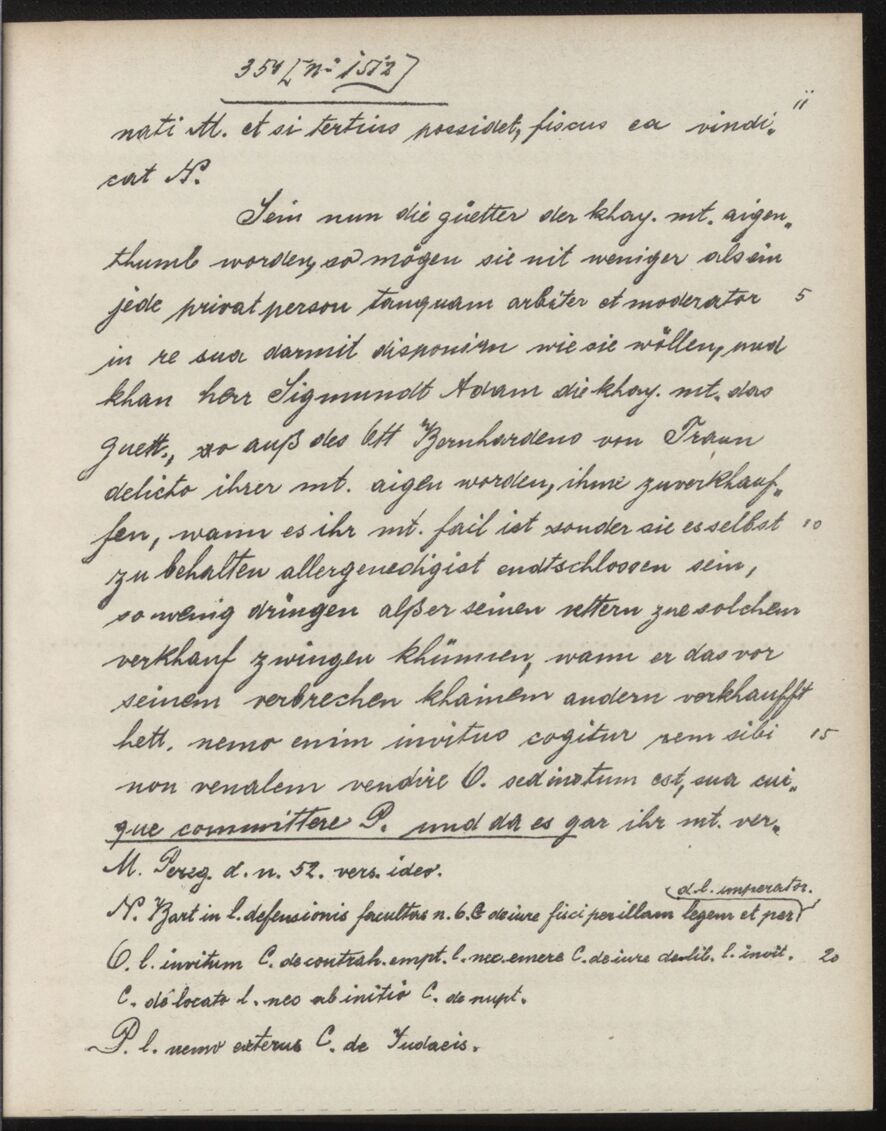 354 [nº 1512]
11
nati M. et si tertius possidet, fiscus ea vindi„
cat N.
Sein nun die güetter der khay. mt. aigen„
thumb worden, so mögen sie nit weniger als ein
jede privat person tanquam arbiter et moderator 5
in re sua darmit disponirn wie sie wöllen, und
khan herr Sigmundt Adam die khay. mt. das
guett., so auß des Ott Bernhardens von Traun
delicto ihrer mt. aigen worden, ihme zuverkhauf„
fen, wann es ihr mt. fail ist sonder sie es selbst 10
zu behalten allergenedigist endtschlossen sein,
so wenig dringen alß er seinen vettern zue solchem
verkhauf zwingen khünnen, wann er das vor
seinem verbrechen khainem andern verkhaufft
hett. nemo enim invitus cogitur rem sibi 15
non venalem vendire O. sed iustum est, sua cui„
que committere P. und da es gar ihr mt. ver„
M. Pereg. d. n. 52. vers. ideo.
(d. l. imperator.
N. Bart in l. defensionis facultas n. 6. C de iure fisci per illam legem et per)
O. l. invitum C. de contrah. empt. l. nec emere C. de iure delib. l. invit. 20
C. de locato l. nec ab initio C. de nupt.
P. l. nemo exterus C. de Iudaeis.